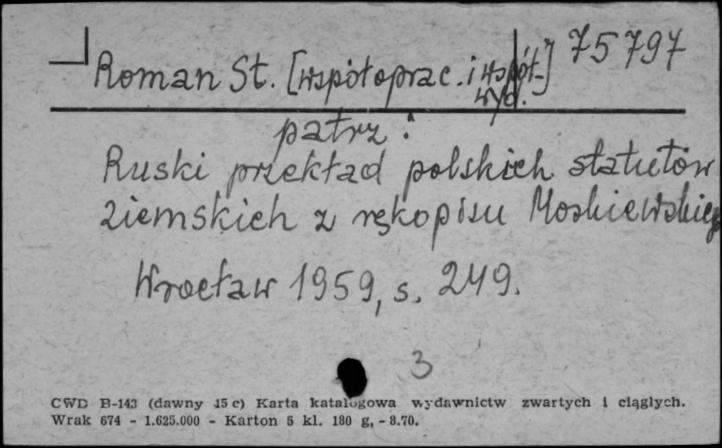 75797
Roman St. [współoprac. i współ-]
wyd.
patrz:
Ruski przekład polskich statutów
ziemskich z rękopisu Moskiewskieg
Wrocław 1959, s. 249.
3
CWD B-143 (dawny 15 c) Karta katalogowa wydawnictw zwartych i ciągłych.
Wrak 674 - 1.625.000 - Karton 5 kl. 180 g, - 8.70.